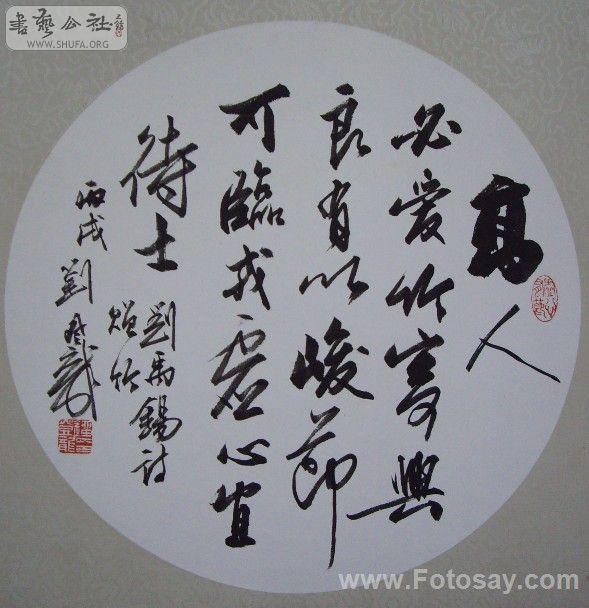 書藝公社
WWW.SHUFA.ORG
高人
必爱竹寄興
良有以峻節
可臨戎虚心宜
待士
劉禹錫詩
贈竹
丙戌劉
www.Fotosay.com